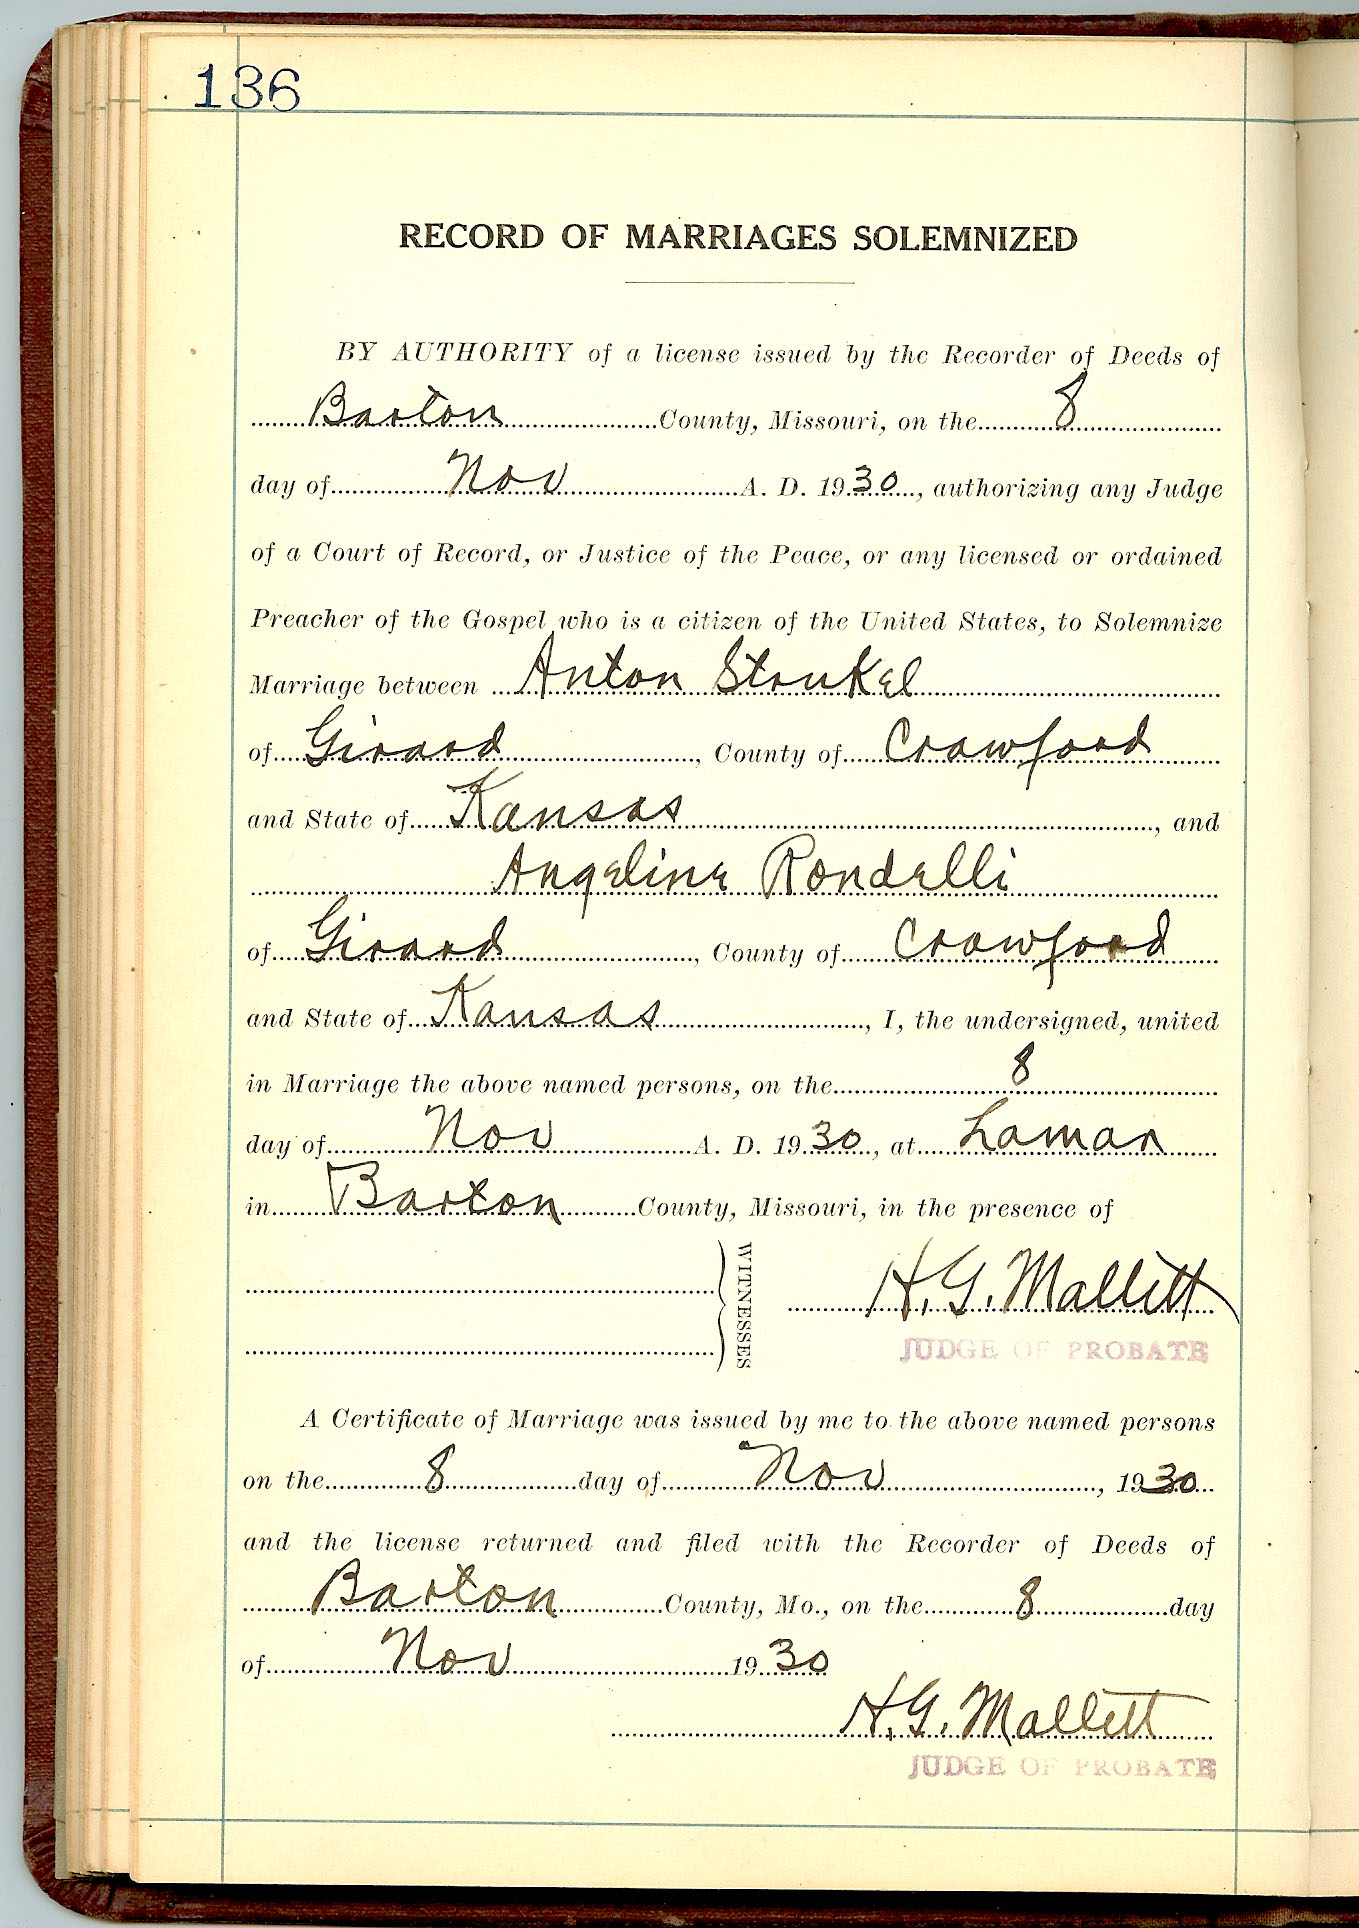 136
RECORD OF MARRIAGES SOLEMNIZED
BY AUTHORITY of a license issued by the Recorder of Deeds of
Barton County, Missouri, on the 8
day of Nov A. D. 1930, authorizing any Judge
of a Court of Record, or Justice of the Peace, or any licensed or ordained
Preacher of the Gospel who is a citizen of the United States, to Solemnize
Marriage between Anton Stoukel
of Girard, County of Crawford
and State of Kansas, and
Angeline Rondelli
of Girard, County of Crawford
and State of Kansas, I, the undersigned, united
in Marriage the above named persons, on the 8
day of Nov A. D. 1930, at Lamar
in Barton County, Missouri, in the presence of
WITNESSES
H. G. Mallett
JUDGE OF PROBATE
A Certificate of Marriage was issued by me to the above named persons
on the 8 day of Nov, 1930
and the license returned and filed with the Recorder of Deeds of
Barton County, Mo., on the 8 day
of Nov 1930
H. G. Mallett
JUDGE OF PROBATE